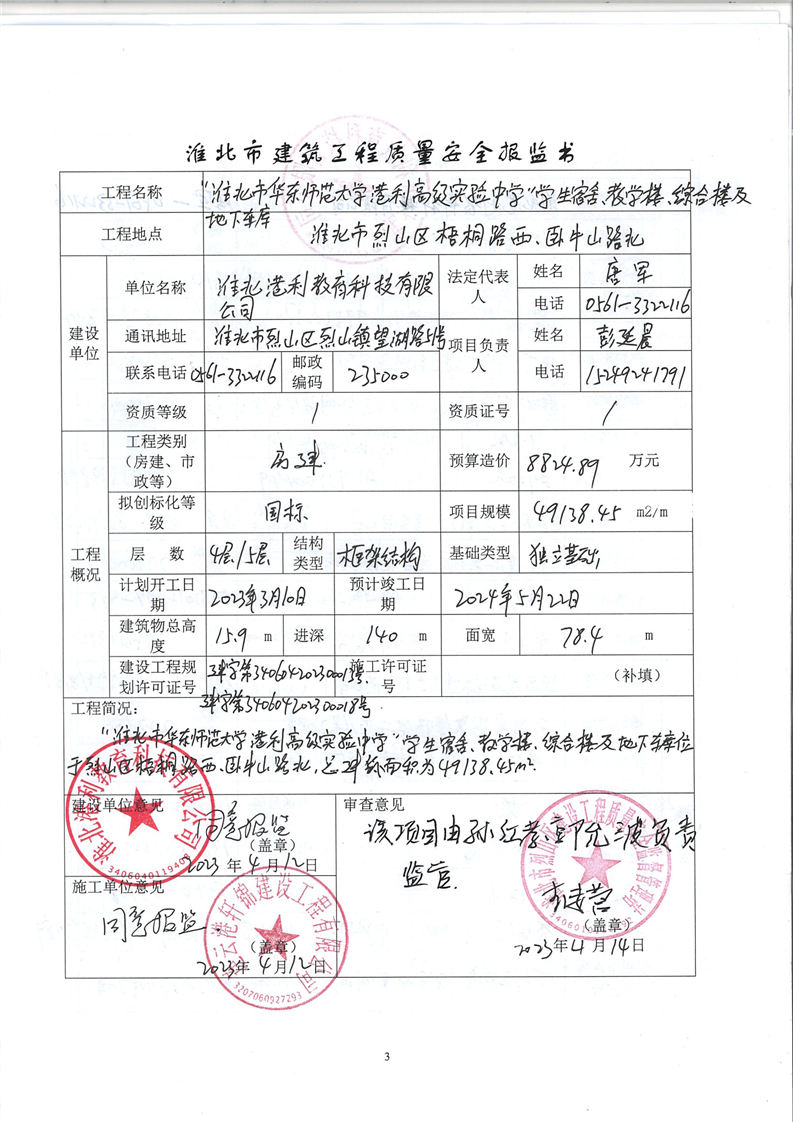 淮北市建筑工程质量安全报监书
工程名称 “淮北市华东师范大学港利高级实验中学”学生宿舍、教学楼、综合楼及
地下车库
工程地点 淮北市烈山区梧桐路西、卧牛山路北
建设单位
单位名称 淮北港利教育科技有限公司
法定代表人 姓名 唐军
电话 0561-3322116
通讯地址 淮北市烈山区烈山镇望湖路51号
项目负责人 姓名 彭延晨
联系电话 0561-3322116 邮政编码 235000 电话 15249241791
资质等级 / 资质证号 /
工程概况
工程类别(房建、市政等) 房建 预算造价 8824.89 万元
拟创标化等级 国标 项目规模 49138.45 m2/m
层 数 4层/5层 结构类型 框架结构 基础类型 独立基础
计划开工日期 2023年3月10日 预计竣工日期 2024年5月22日
建筑物总高度 15.9 m 进深 140 m 面宽 78.4 m
建设工程规划许可证号 建字第340604202300013号 施工许可证号 (补填)
建字第340604202300018号
工程简况:
“淮北市华东师范大学港利高级实验中学”学生宿舍、教学楼、综合楼及地下车库位
于烈山区梧桐路西、卧牛山路北,总建筑面积为49138.45m².
建设单位意见
同意报监
(盖章)
2023年4月12日
淮北港利教育科技有限公司
3406040119408
审查意见
该项目由孙红孝 负责
监管.
(盖章)
2023年4月14日
施工单位意见
同意报监.
(盖章)
2023年4月12日
连云港轩锦建设工程有限公司
3207060927293
3